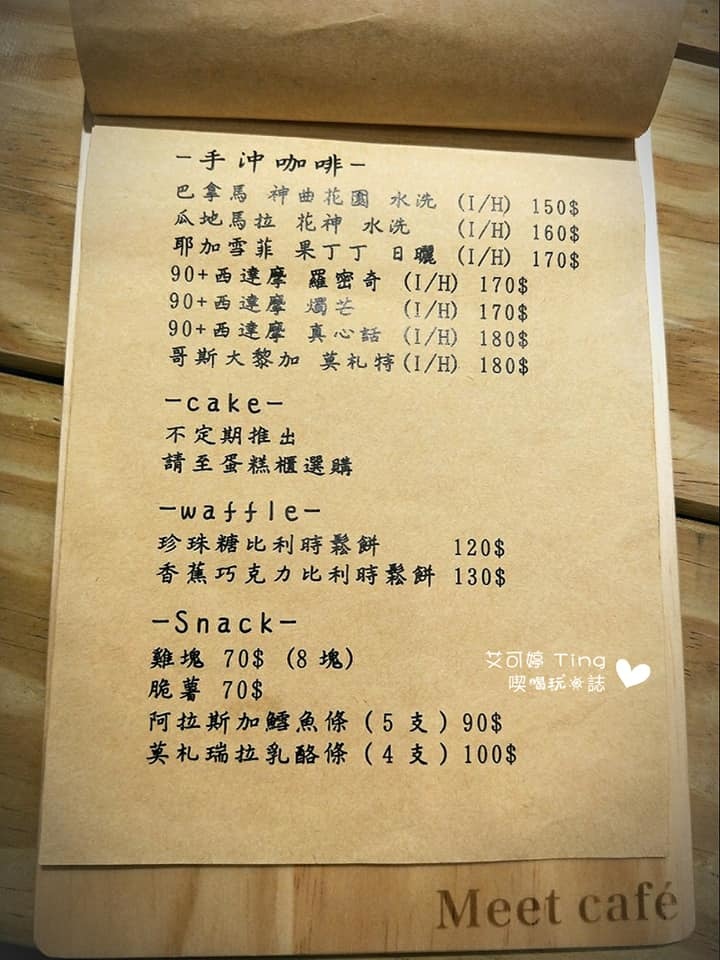 -手沖咖啡-
巴拿馬 神曲花園 水洗 (I/H) 150$
瓜地馬拉 花神 水洗 (I/H) 160$
耶加雪菲 果丁丁 日曬 (I/H) 170$
90+西達摩 羅密奇 (I/H) 170$
90+西達摩 燭芒 (I/H) 170$
90+西達摩 真心話 (I/H) 180$
哥斯大黎加 莫札特(I/H) 180$
-cake-
不定期推出
請至蛋糕櫃選購
-waffle-
珍珠糖比利時鬆餅 120$
香蕉巧克力比利時鬆餅 130$
-Snack-
雞塊 70$ (8塊)
脆薯 70$
阿拉斯加鱈魚條(5支)90$
莫札瑞拉乳酪條(4支)100$
艾可婷 Ting
喫喝玩※誌
Meet café